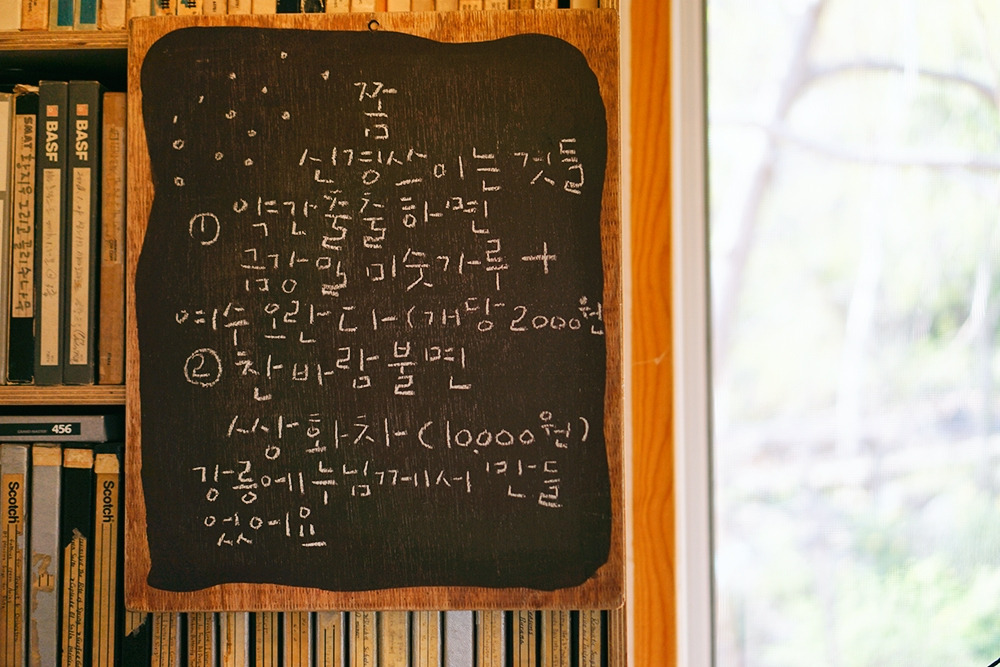 쫌
신경쓰이는 것들
① 약간 출출하면
금강밀 미숫가루 +
여수 오란다 (개당 2000원
② 찬바람 불면
쌍화차 (10,000원)
강릉에 누님께서 만들
었어요
BASF
BASF
456
Scotch
Scotch